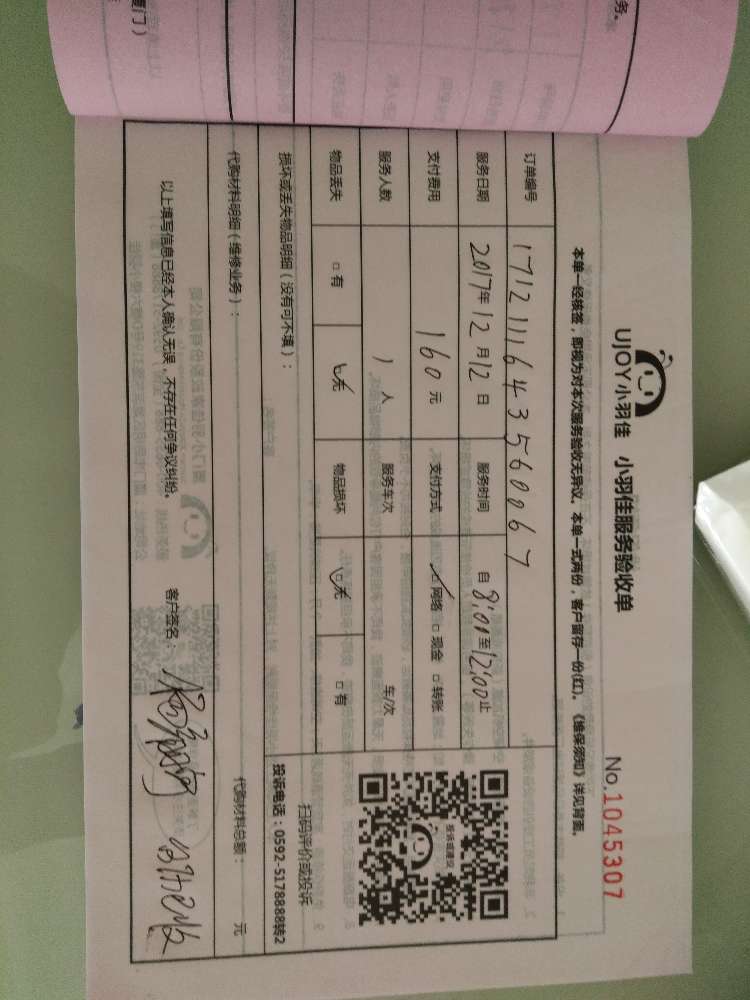 UJOY小羽佳 小羽佳服务验收单
No.1045307
本单一经核签，即视为对本次服务验收无异议。本单一式两份，客户留存一份(红)。《维保须知》详见背面。
订单编号 1712111643560067
服务日期 2017年12月12日 服务时间 自8:00至12:00止
支付费用 160元 支付方式 ☑网络 □现金 □转账
服务人数 1人 服务车次 车/次
物品丢失 □有 ☑无 物品损坏 ☑无 □有
投诉或建议
扫码评价或投诉
投诉电话：0592-5178888转2
损坏或丢失物品明细（没有可不填）：
代购材料明细（维修业务）： 代购材料总额： 元
以上填写信息已经本人确认无误，不存在任何争议纠纷。 客户签名：
务。
厦门）